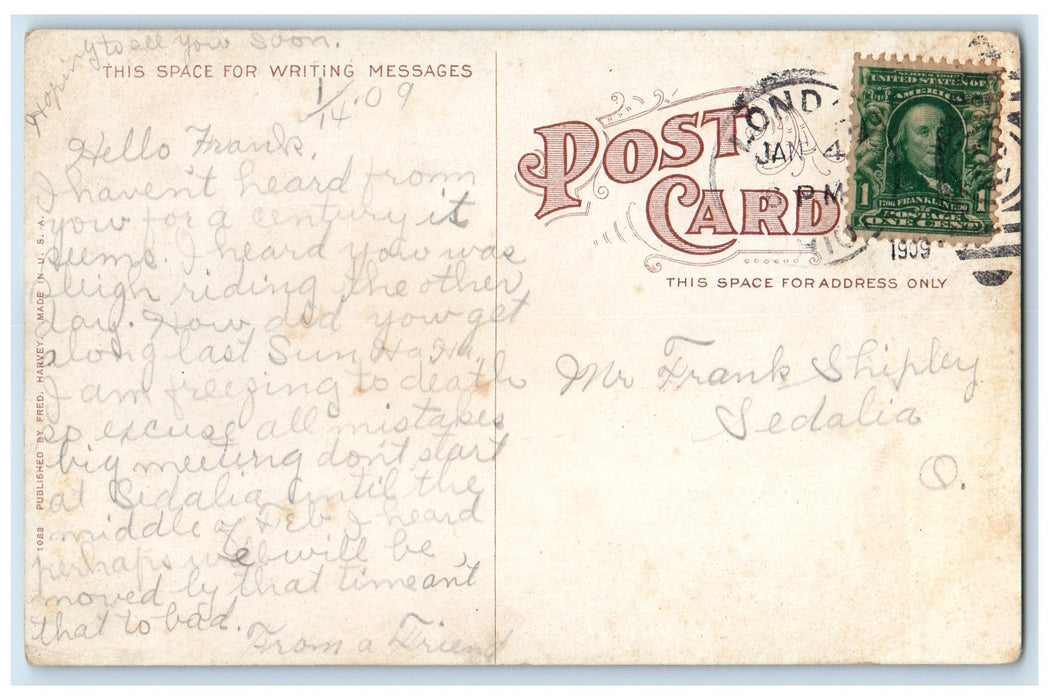 Hoping to see you soon.
THIS SPACE FOR WRITING MESSAGES
1/14.09
Hello Frank.
I haven't heard from
you for a century it
seems. I heard you was
sleigh riding the other
day. How did you get
along last Sun Ha Ha.
I am freezing to death
so excuse all mistakes
big meeting don't start
at Sedalia until the
middle of Feb. I heard
perhaps we will be
moved by that time an't
that to bad.
From a Friend
1088 PUBLISHED BY FRED. HARVEY. MADE IN U. S. A.
POST
CARD
LOND
JAN 4
PM
OHIO
1909
SERIES 1902
UNITED STATES OF
AMERICA
1 1
1706 FRANKLIN 1790
POSTAGE
ONE CENT
THIS SPACE FOR ADDRESS ONLY
Mr Frank Shipley
Sedalia
O.